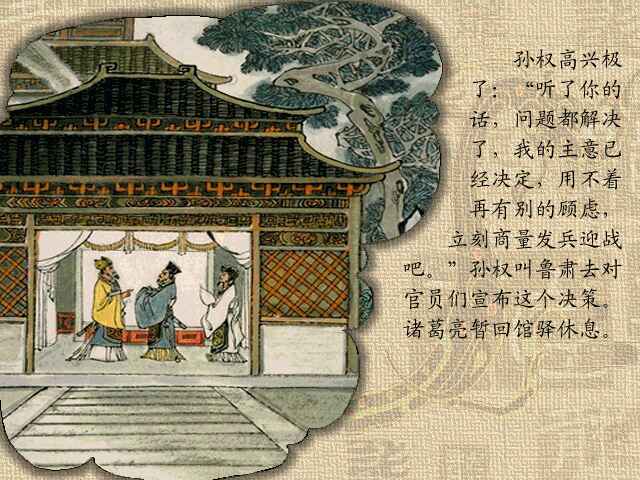 孙权高兴极
了：“听了你的
话，问题都解决
了，我的主意已
经决定，用不着
再有别的顾虑，
立刻商量发兵迎战
吧。”孙权叫鲁肃去对
官员们宣布这个决策。
诸葛亮暂回馆驿休息。